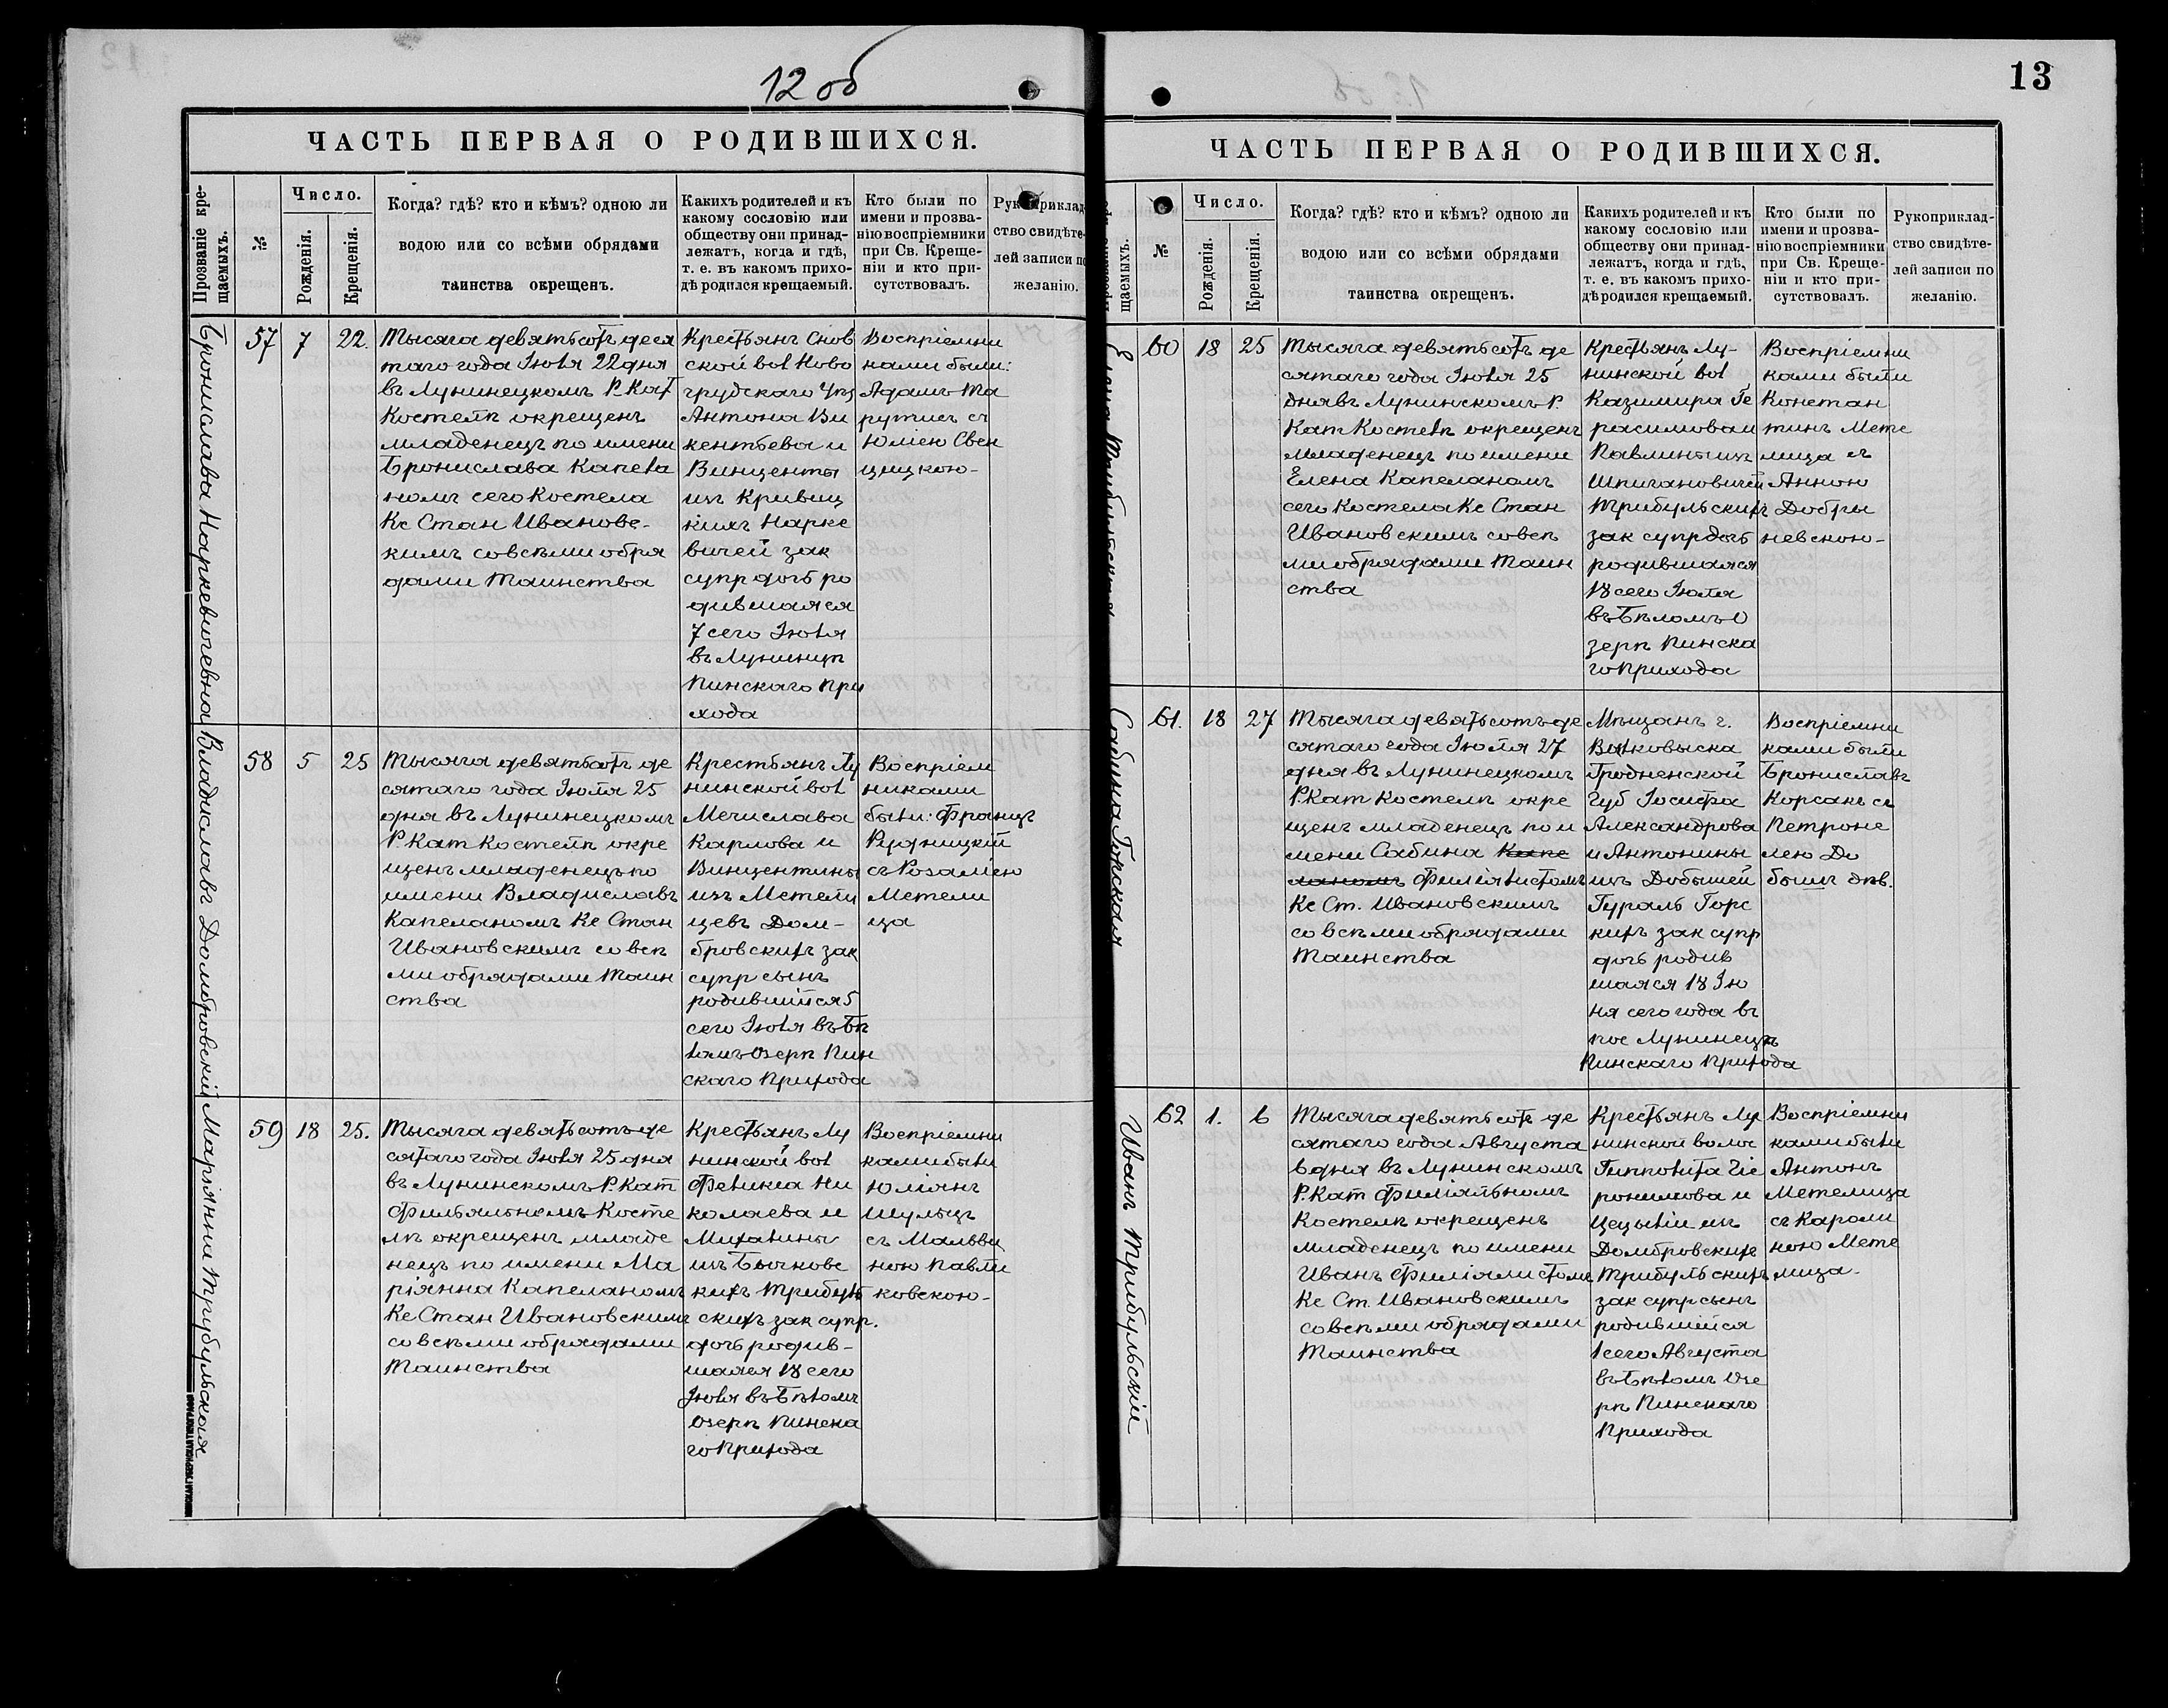 12 об
ЧАСТЬ ПЕРВАЯ О РОДИВШИХСЯ.
Прозваніе кре-
щаемыхъ.
№
Число.
Рожденія.
Крещенія.
Когда? гдѣ? кто и кѣмъ? одною ли
водою или со всѣми обрядами
таинства окрещенъ.
Какихъ родителей и къ
какому сословію или
обществу они принад-
лежатъ, когда и гдѣ,
т. е. въ какомъ прихо-
дѣ родился крещаемый.
Кто были по
имени и прозва-
нію воспріемники
при Св. Креще-
ніи и кто при-
сутствовалъ.
Рукоприклад-
ство свидѣте-
лей записи по
желанію.
Бронислава Наркевичевна
57 7 22.
Тысяча девятьсотъ деся
таго года Іюля 22 дня
въ Лунинецкомъ Р. Кат
Костелѣ окрещенъ
младенецъ по имени
Бронислава Капела
номъ сего Костела
Кс Стан Ивановс-
кимъ совсѣми обря
дами Таинства
Крестьянъ Снов
ской вол Ново
грудскаго Уѣз
Антона Ви
кентьева и
Винценты
изъ Кривиц
кихъ Нарке
вичей зак
супр дочь ро
дившаяся
7 сего Іюля
въ Лунинцѣ
Пинскаго При
хода
Воспріемни
ками были:
Адамъ Ма
рутисъ съ
Юлiею Свен
цицкою-
Владиславъ Домбровскій
58 5 25
Тысяча девятьсотъ де
сятаго года Іюля 25
дня въ Лунинецкомъ
Р. Кат Костелѣ окре
щенъ младенецъ по
имени Владиславъ
Капеланомъ Кс Стан
Ивановскимъ со всѣ
ми обрядами Таин
ства
Крестьянъ Лу
нинской вол
Мечислава
Карлова и
Винцентины
изъ Метели
цевъ Дом-
бровскихъ зак
супр сынъ
родившійся 5
сего Іюля въ Бѣ
ломъ Озерѣ Пин
скаго Прихода
Воспріем
никами
были: Францъ
Рудницкій
съ Розаліею
Метели
ца
Маріянна Трибульская
59 18 25.
Тысяча девятьсотъ де
сятаго года Іюля 25 дня
въ Лунинскомъ Р. Кат
Фильяльномъ Косте
лѣ окрещенъ младе
нецъ по имени Ма
ріянна Капеланомъ
Кс Стан Ивановскимъ
со всѣми обрядами
Таинства
Крестьянъ Лу
нинской вол
Феликса Ни
колаева и
Михалины
изъ Бычковс
кихъ Трибуль
скихъ зак супр.
дочь родив-
шаяся 18 сего
Іюля въ Бѣломъ
Озерѣ Пинска
го Прихода
Воспріемни
ками были
Юліанъ
Шульцъ
съ Мальви
ною Павли
ковскою-
МИНСКАЯ ГУБЕРНСКАЯ ТИПОГРАФІЯ
13
ЧАСТЬ ПЕРВАЯ О РОДИВШИХСЯ.
щаемыхъ.
№
Число.
Рожденія.
Крещенія.
Когда? гдѣ? кто и кѣмъ? одною ли
водою или со всѣми обрядами
таинства окрещенъ.
Какихъ родителей и къ
какому сословію или
обществу они принад-
лежатъ, когда и гдѣ,
т. е. въ какомъ прихо-
дѣ родился крещаемый.
Кто были по
имени и прозва-
нію воспріемники
при Св. Креще-
ніи и кто при-
сутствовалъ.
Рукоприклад-
ство свидѣте-
лей записи по
желанію.
Елена Трибульская
60 18 25
Тысяча девятьсотъ де
сятаго года Іюля 25
дня въ Лунинскомъ Р.
Кат Костелѣ окрещенъ
младенецъ по имени
Елена Капеланомъ
сего Костела Кс Стан
Ивановскимъ со всѣ
ми обрядами Таин
ства
Крестьянъ Лу-
нинской вол
Казимира Ге
расимова и
Павлины изъ
Шпигановичей
Трибульскихъ
зак супр дочь
родившаяся
18 сего Іюля
въ Бѣломъ О
зерѣ Пинска
го Прихода
Воспріемни
ками были
Констан
тинъ Мете
лица съ
Анною
Добры
невскою-
Сабина Горская
61. 18 27
Тысяча девятьсотъ де
сятаго года Іюля 27
дня въ Лунинецкомъ
Р. Кат Костелѣ окре
щенъ младенецъ по и
мени Сабина Капе
ланомъ Филіялистомъ
Кс Ст. Ивановскимъ
со всѣми обрядами
Таинства
Мѣщанъ г.
Волковыска
Гродненской
Губ Іосифа
Александрова
и Антонины
изъ Добышей
Гураль Горс
кихъ зак супр
дочь родив
шаяся 18 Ію
ня сего года въ
пос Лунинецъ
Пинскаго Прихода
Воспріемни
ками были
Брониславъ
Корсакъ съ
Петроне
лею До
бышъ дѣв.
Иванъ Трибульскій
62 1. 6
Тысяча девятьсотъ де
сятаго года Августа
6 дня въ Лунинскомъ
Р. Кат Филіяльномъ
Костелѣ окрещенъ
младенецъ по имени
Иванъ Филіялистомъ
Кс Ст. Ивановскимъ
со всѣми обрядами
Таинства
Крестьянъ Лу
нинской волос
Гипполита Іе
ронимова и
Цецыліи изъ
Домбровскихъ
Трибульскихъ
зак супр сынъ
родившійся
1 сего Августа
въ Бѣломъ Озе
рѣ Пинскаго
Прихода
Воспріемни
ками были
Антонъ
Метелица
съ Кароли
ною Мете
лица-